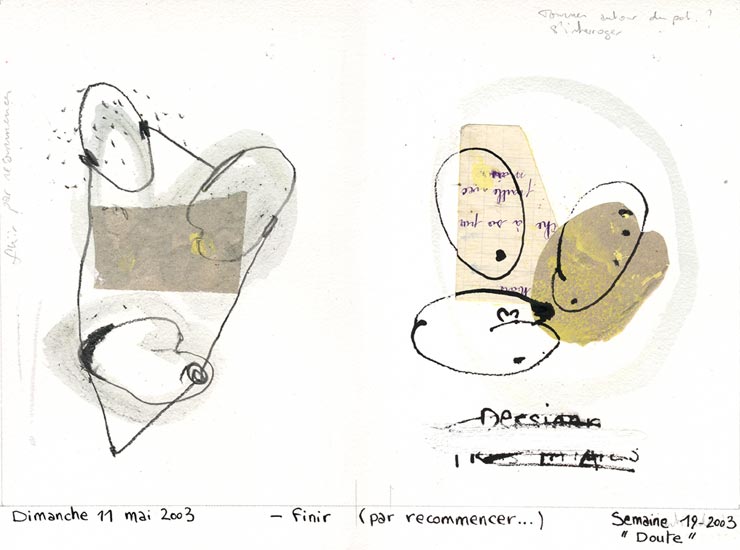 Tourner autour du pot.?
s'interroger
finir par recommencer
main
feuille avec
à sa
3
Dimanche 11 mai 2003
– finir (par recommencer...)
Semaine 19-2003
"Doute"